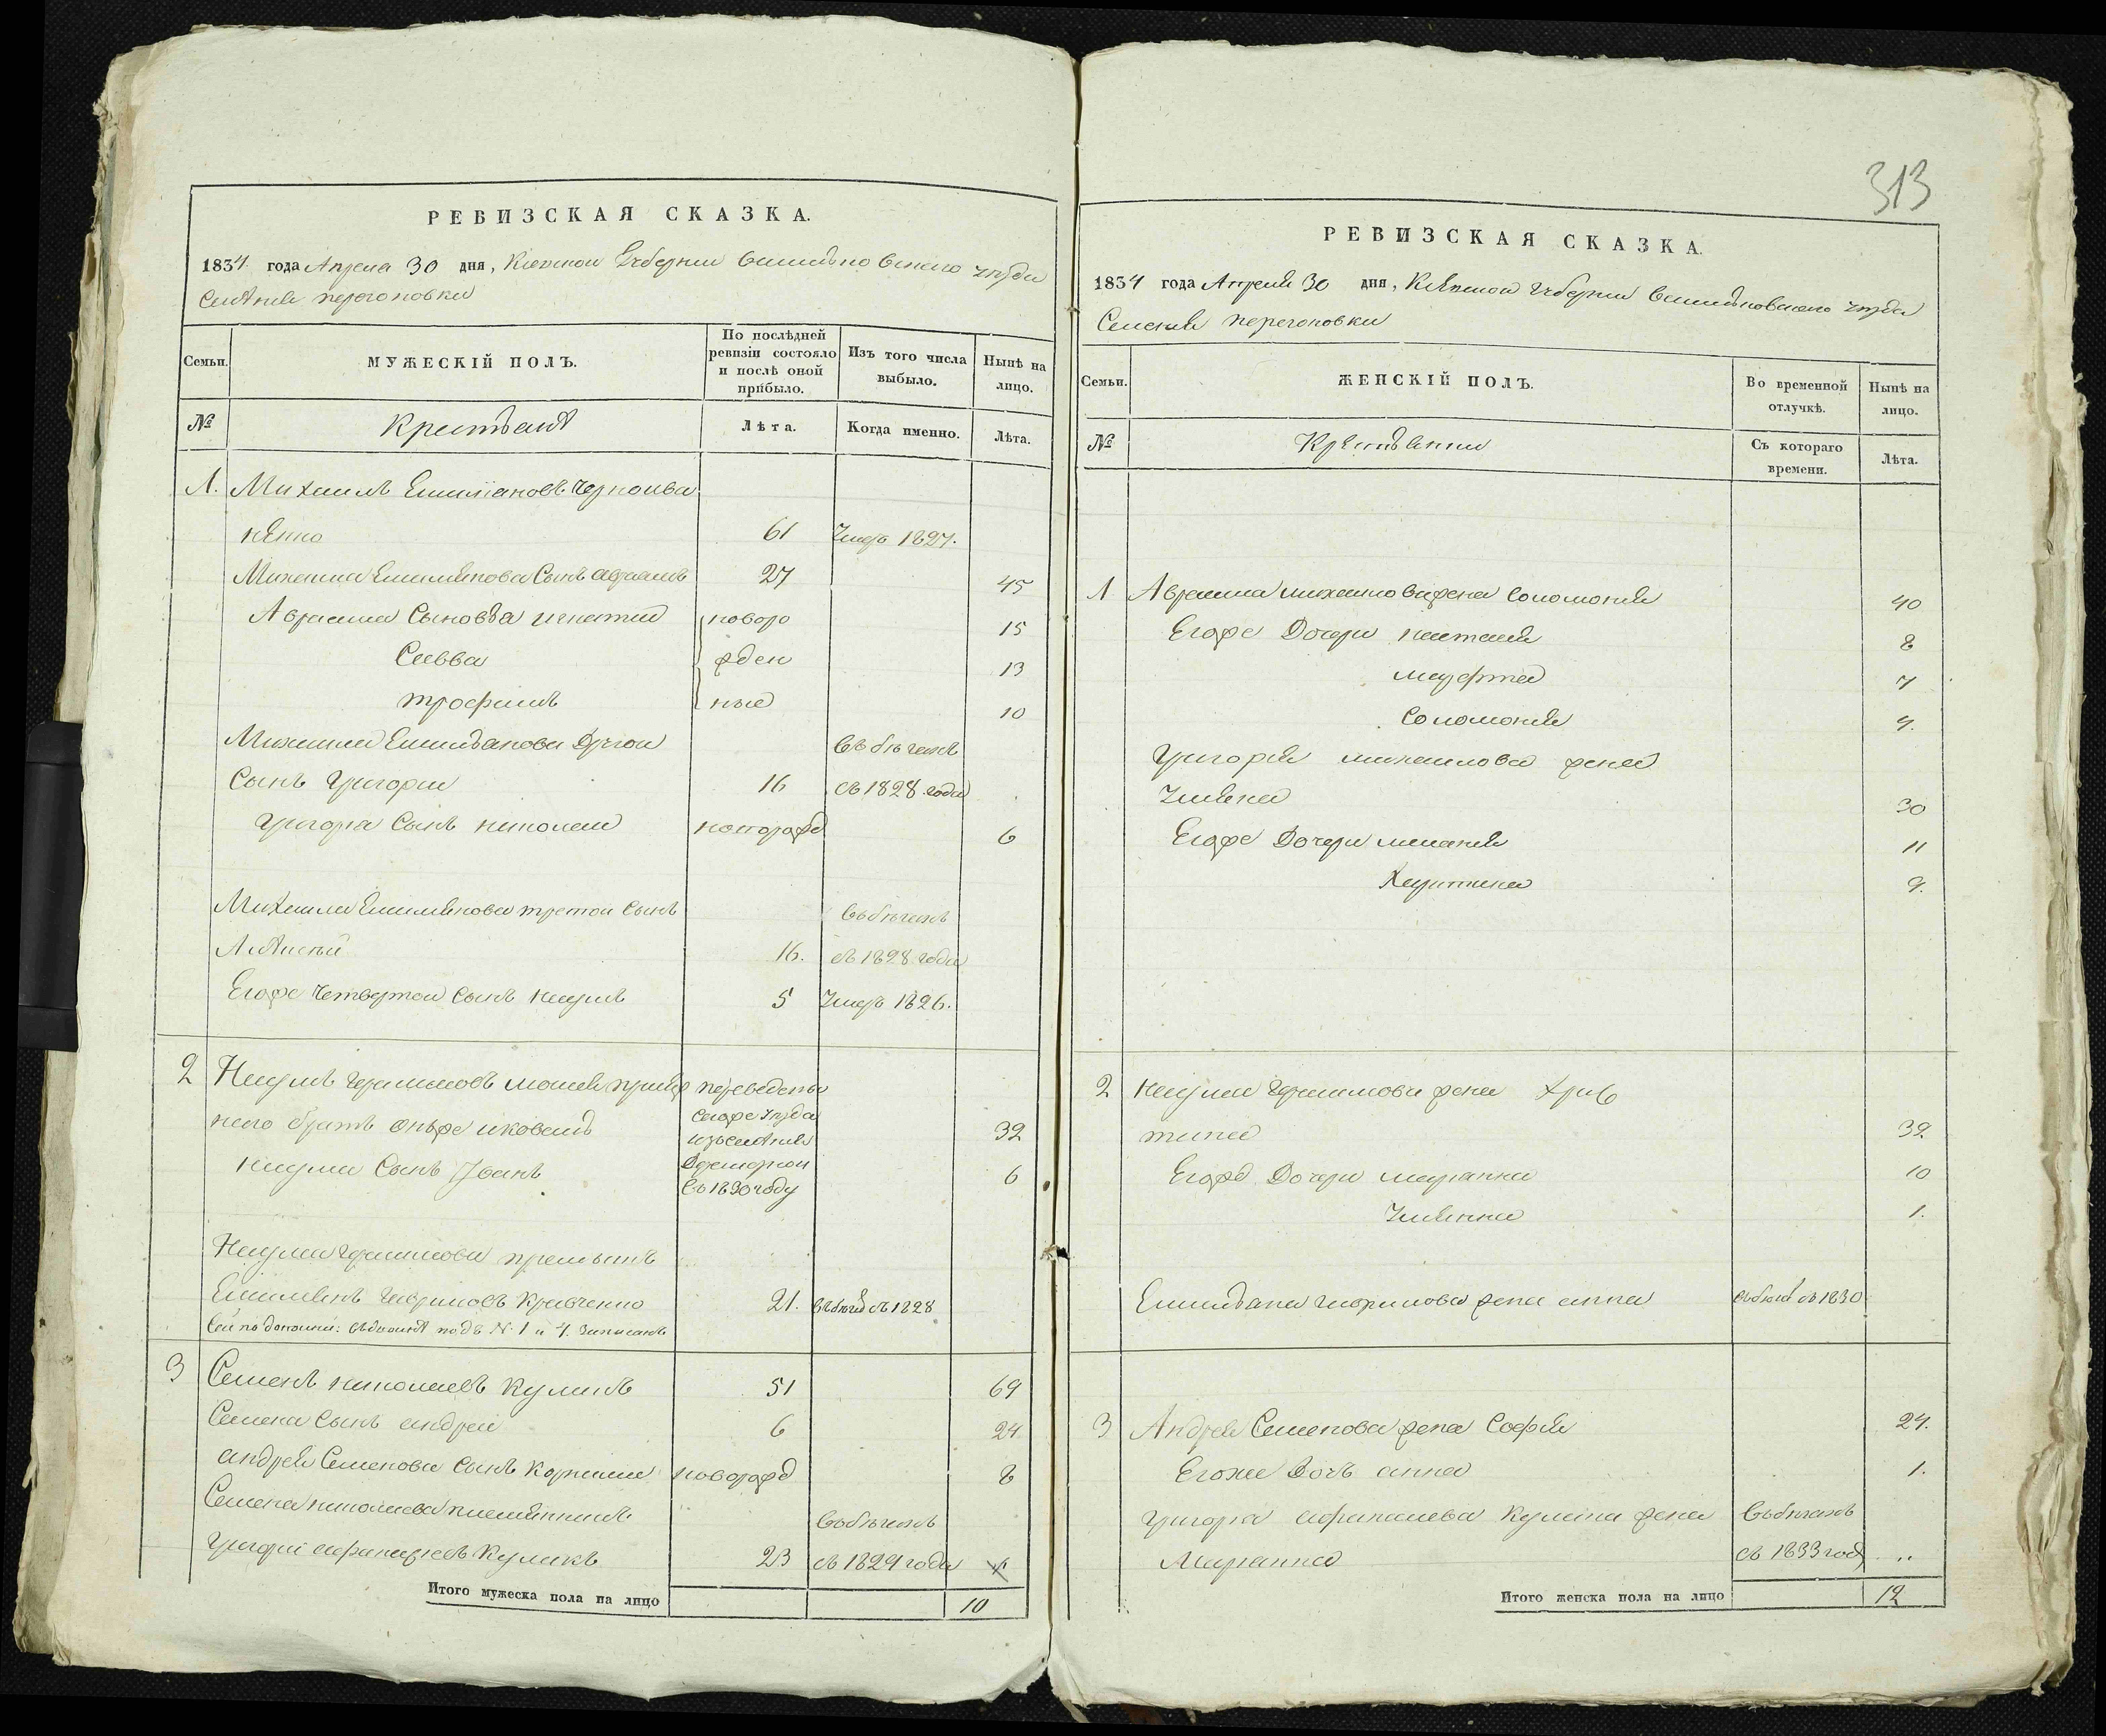 РЕВИЗСКАЯ СКАЗКА.
1834 года Апреля 30 дня, Киевской Губернии Васильковского уезда
Селения Перегоновки
Семьи.
МУЖЕСКІЙ ПОЛЪ.
По послѣдней ревизіи состояло и послѣ оной прибыло.
Изъ того числа выбыло.
Нынѣ на лицо.
№
Крестьяне
Лѣта.
Когда именно.
Лѣта.
1. Михаилъ Емильяновъ Черноива
ненко 61 Умеръ 1827.
Михаила Емильянова Сынъ Авраамъ 27 45
Авраама Сыновья Игнатий новоро 15
Савва жден 13
Трофимъ ные 10
Михаила Емильянова Другой Въ бегахъ
Сынъ Григории 16 съ 1828 года
Григория Сынъ Николай новорожд 6
Михаила Емильянова третой Сынъ Въ бегахъ
Алексей 16. съ 1828 года
Егоже Четвертой Сынъ Наумъ 5 Умеръ 1826.
2 Наумъ Герасимовъ переведены
него братъ онъже Яковенко сегоже уезда 32
изъ селения
Наума Сынъ Иванъ 6
Въ 1830 году
Наума Герасимова
Емильянъ Гавриловъ Кравченко 21. Въ бегах съ 1828
подъ № 1 и 4. записанъ
3 Семенъ Николаевъ Куликъ 51 69
Семена Сынъ Андрей 6 24
Андрея Семенова Сынъ Корнилий новорожд 8
Семена Николаева племянникъ Въ бегахъ
Григорий Афанасиевъ Куликъ 23 съ 1829 года
Итого мужеска пола на лицо 10
313
РЕВИЗСКАЯ СКАЗКА.
1834 года Апреля 30 дня, Киевской Губернии Васильковского уезда
Селения Перегоновки
Семьи.
ЖЕНСКІЙ ПОЛЪ.
Во временной отлучкѣ.
Нынѣ на лицо.
№
Крестьянки
Съ котораго времени.
Лѣта.
1 Авраама Михайлова жена Соломония 40
Егоже Дочери Наталия 8
Марфта 7
Соломония 4.
Григория Михаилова жена
Ульяна 30
Егоже Дочери Мелания 11
Харитина 9.
2 Наума Герасимова жена Хрис
тина 32
Егоже Дочери Марианна 10
Ульянна 1.
Емильяна Гаврилова жена Анна въ бегах съ 1830
3 Андрея Семенова жена София 24.
Егоже Дочь Анна 1.
Григория Афанасиева Кулика жена Въ бегахъ
Марианна съ 1833 году „
Итого женска пола на лицо 12